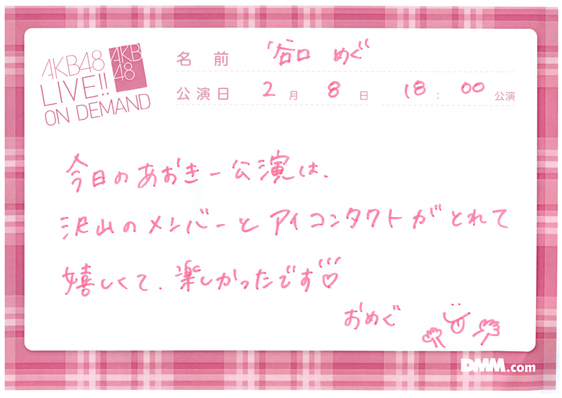 AKB48
LIVE!!
ON DEMAND
AKB
48
名前 谷口 めぐ
公演日 2月8日 18:00公演
今日のあおきー公演は、
沢山のメンバーとアイコンタクトがとれて
嬉しくて、楽しかったです♡
おめぐ
DMM.com